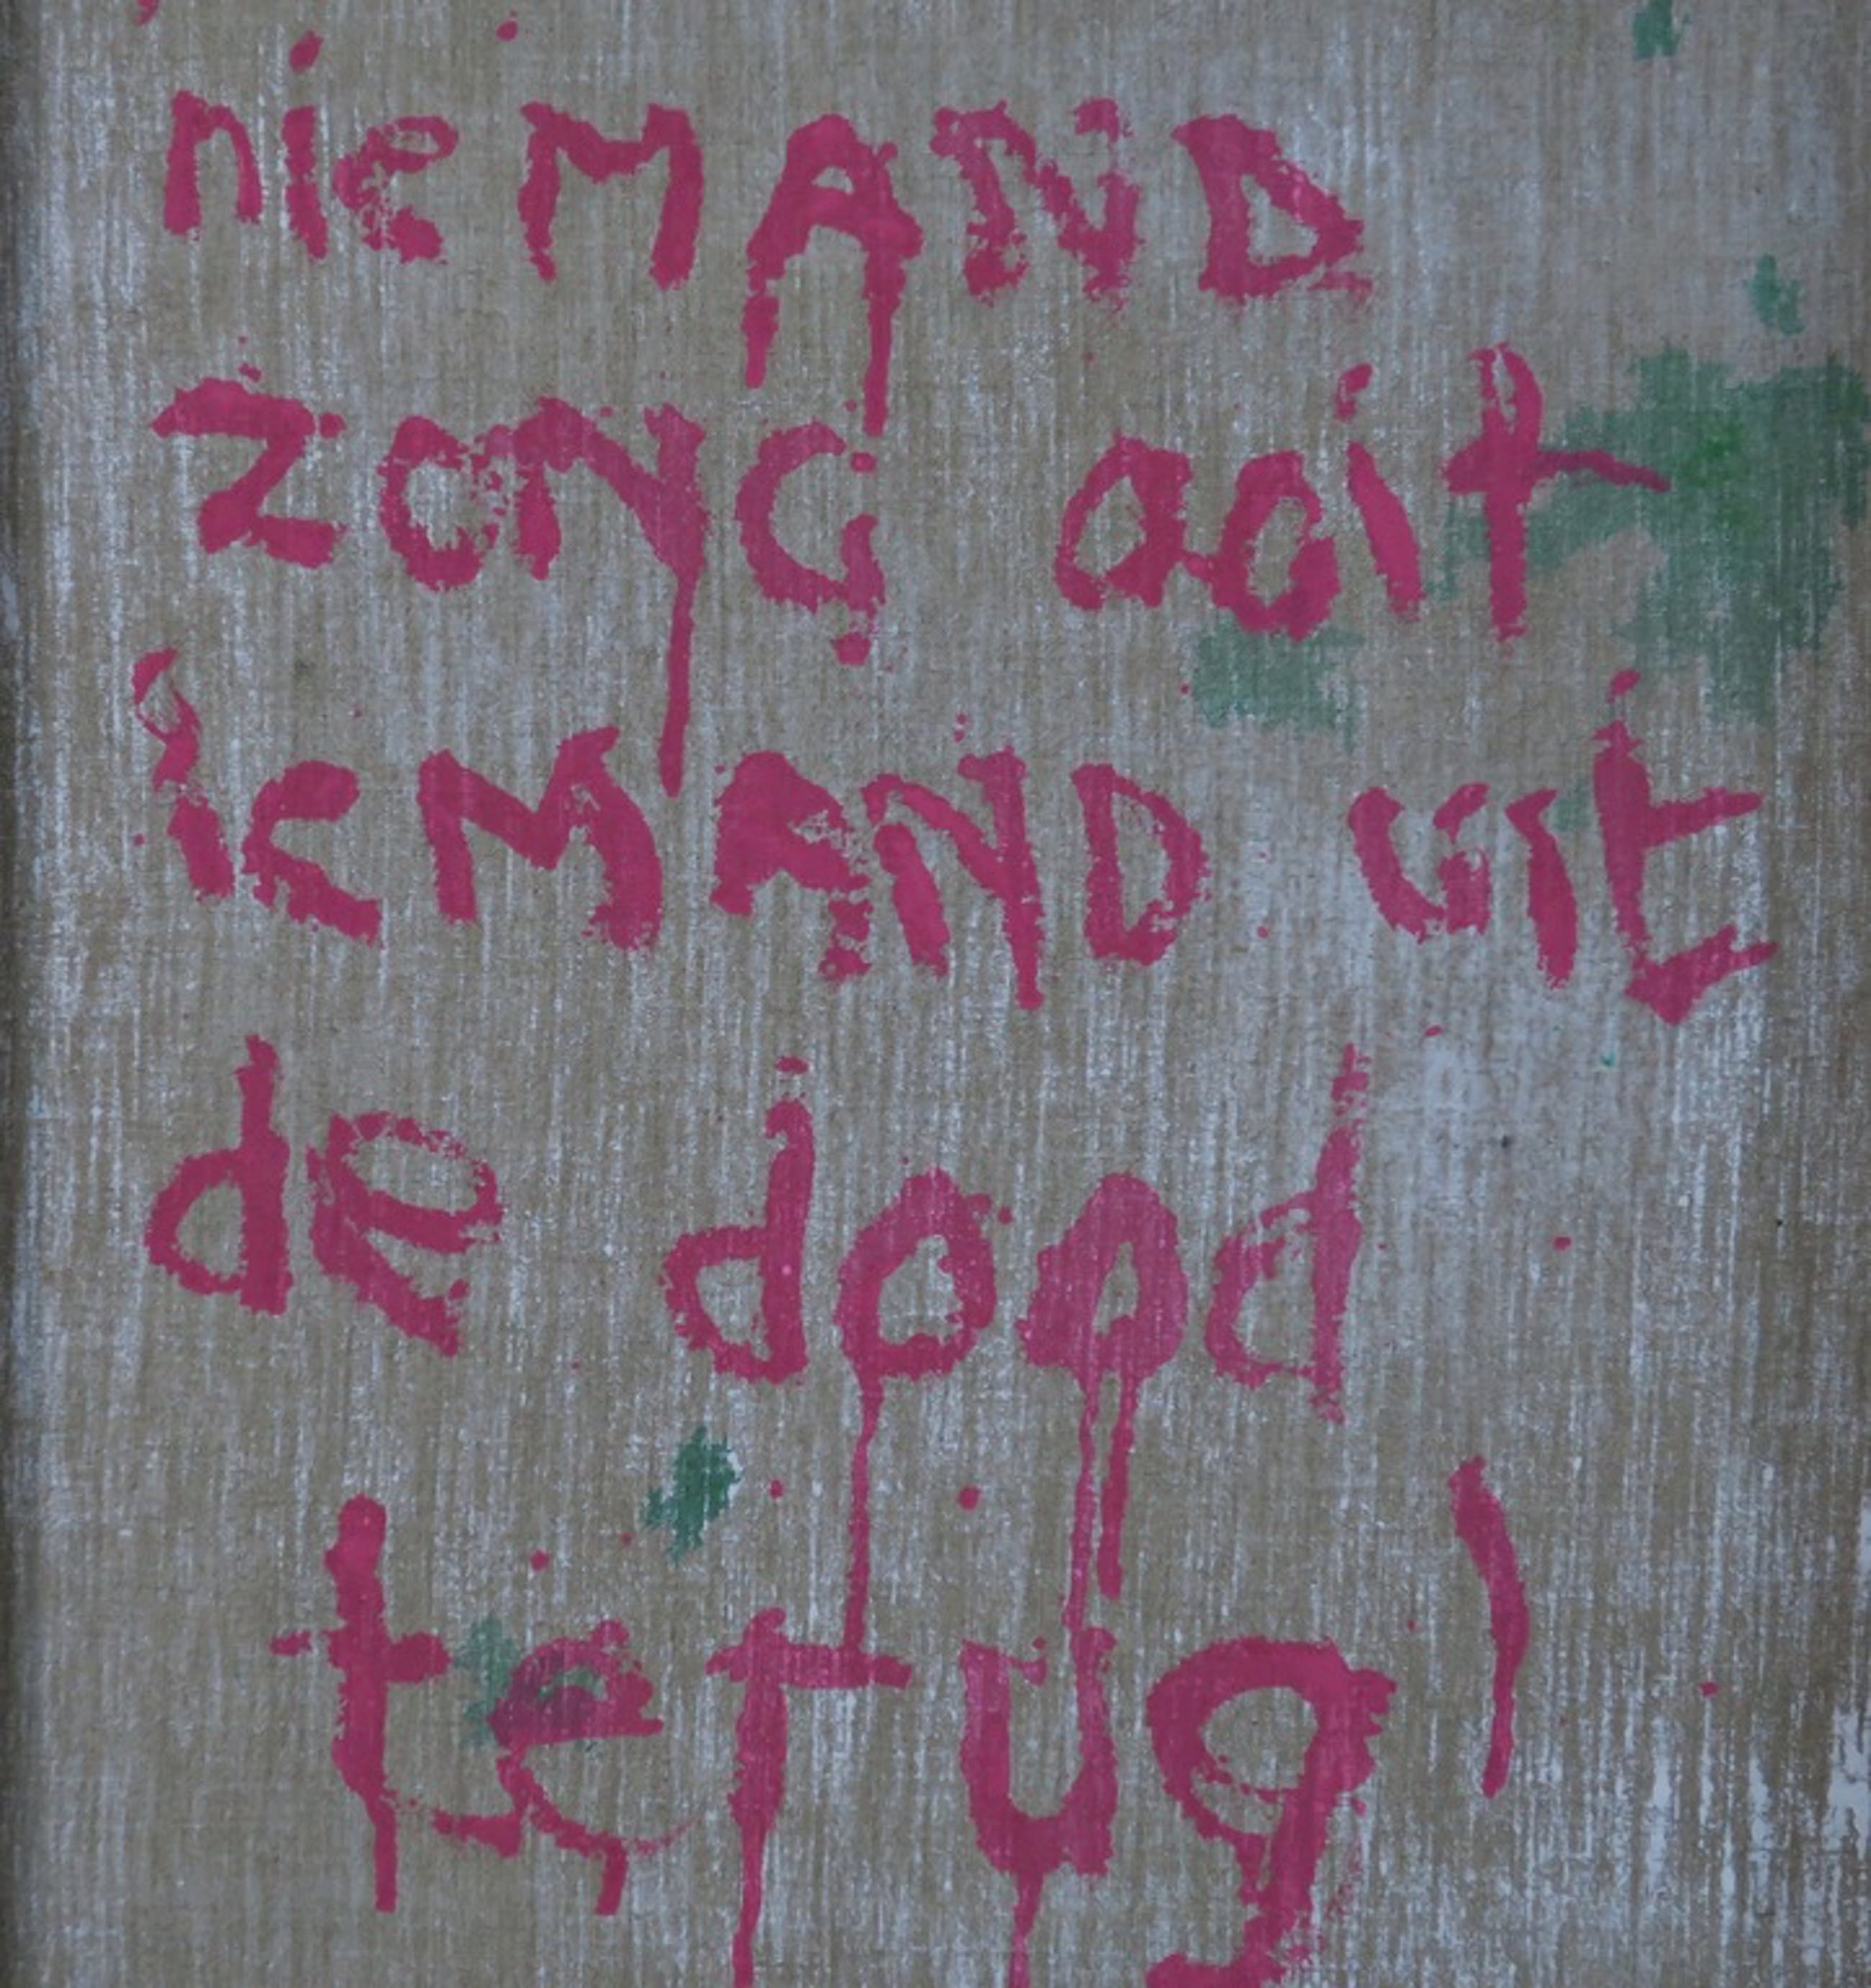 nieMAND
zong ooit
ieMAND uit
de dood
terug'